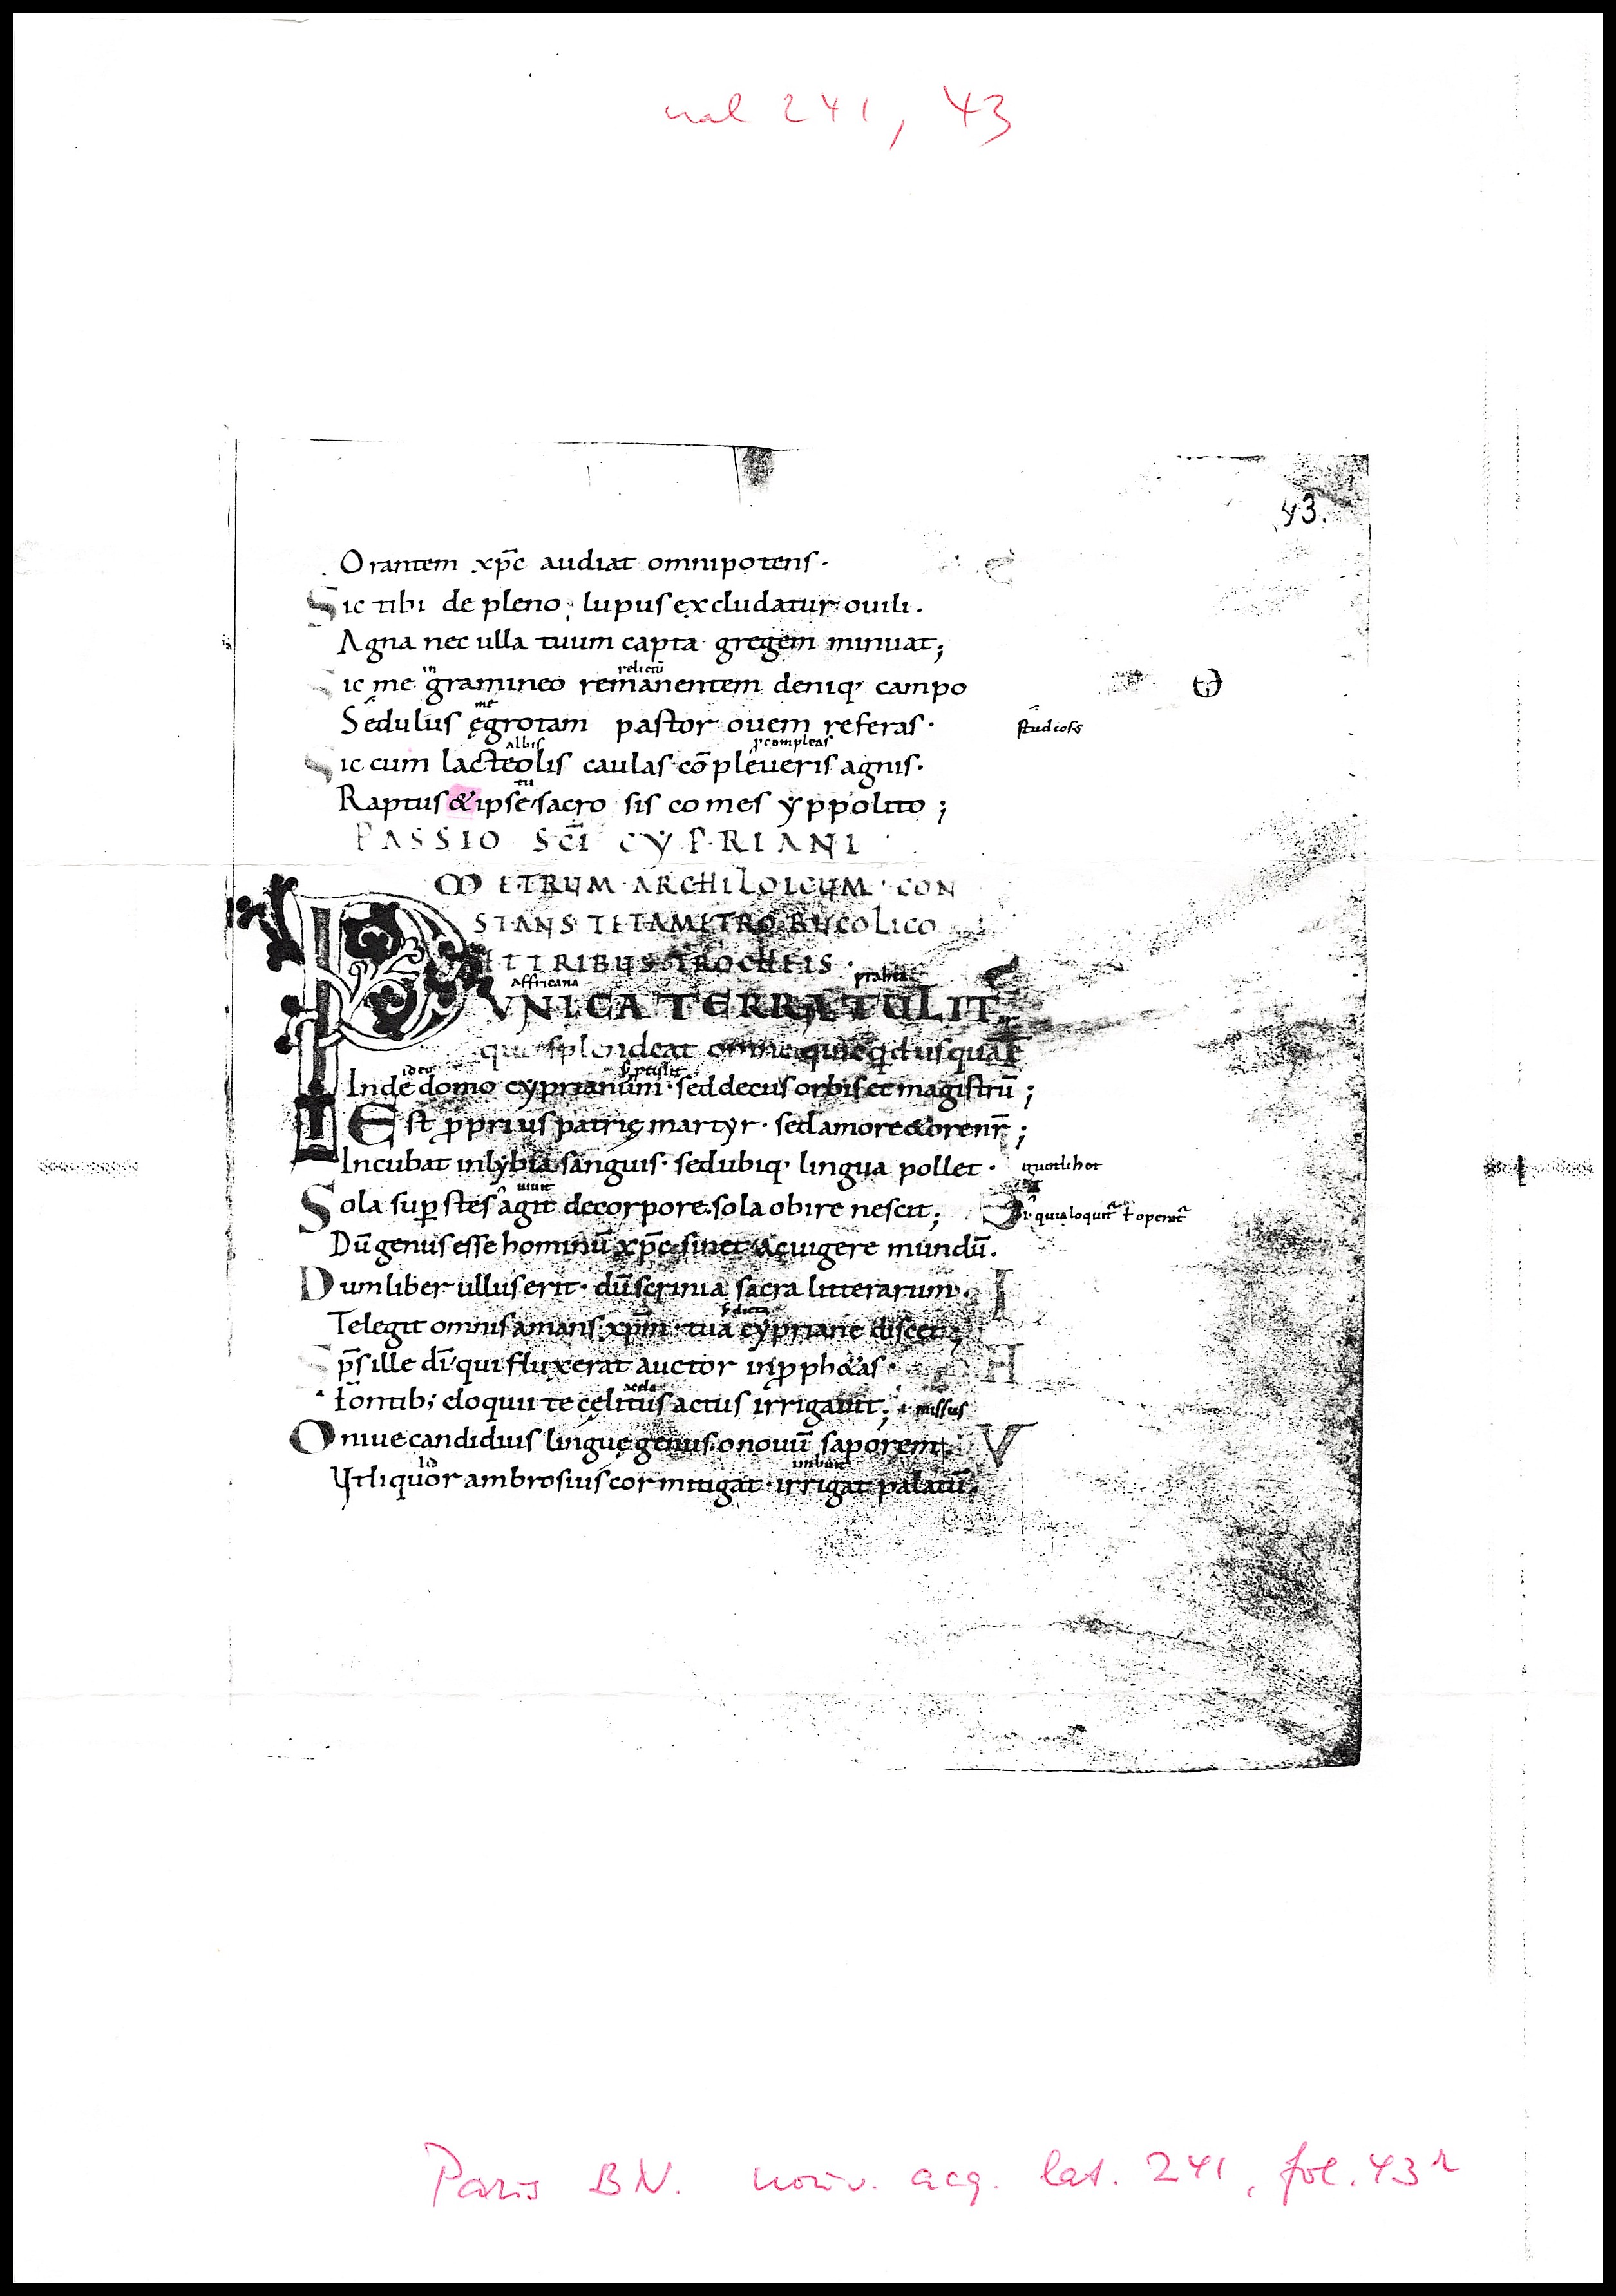 nal 241, 43
43.
Orantem xp̄c audiat omnipotens·
Sic tibi de pleno lupus excludatur ouili·
Agna nec ulla tuum capta gregem minuat;
in relictū
Sic me gramineo remanentem deniq; campo
me
Sedulus ęgrotam pastor ouem referas· studiosus
albis compleas
Sic cum lacteolis caulas cō pleueris agnis·
tu
Raptus & ipse sacro sis comes yppolito;
PASSIO SCĪ CYPRIANI
METRUM ARCHILOICUM· CON
STANS TETAMETRO BUCOLICO
ET TRIBUS TROCHEIS·
affricana
PUNICA TERRA TULIT
quo splendeat omne quicqd usquā Ē
ideo
Inde domo cyprianum· sed decus orbis et magistrū;
Est pprius patrię martyr· sed amore & ore nr̄;
Incubat in lybia sanguis· sed ubiq; lingua pollet· quotlibet
uiuit
Sola sup stes agit de corpore· sola obire nescit; i· quia loquit̄ ł operat̄
Dū genus esse hominū xp̄c sinet ac uigere mundū·
Dum liber ullus erit· dū scrinia sacra litterarum· I
Te legit omnis amans xp̄m· tua cypriane discet;
Sp̄s ille dī· qui fluxerat auctor in pph&as· H
Fontib; eloquii te cęlitus actus irrigauit; i missus
O niue candidius linguę genus· o nouū saporem V
imbuit
Ut liquor ambrosius cor mitigat· irrigat palatū·
Paris BN. nouv. acq. lat. 241, fol. 43r